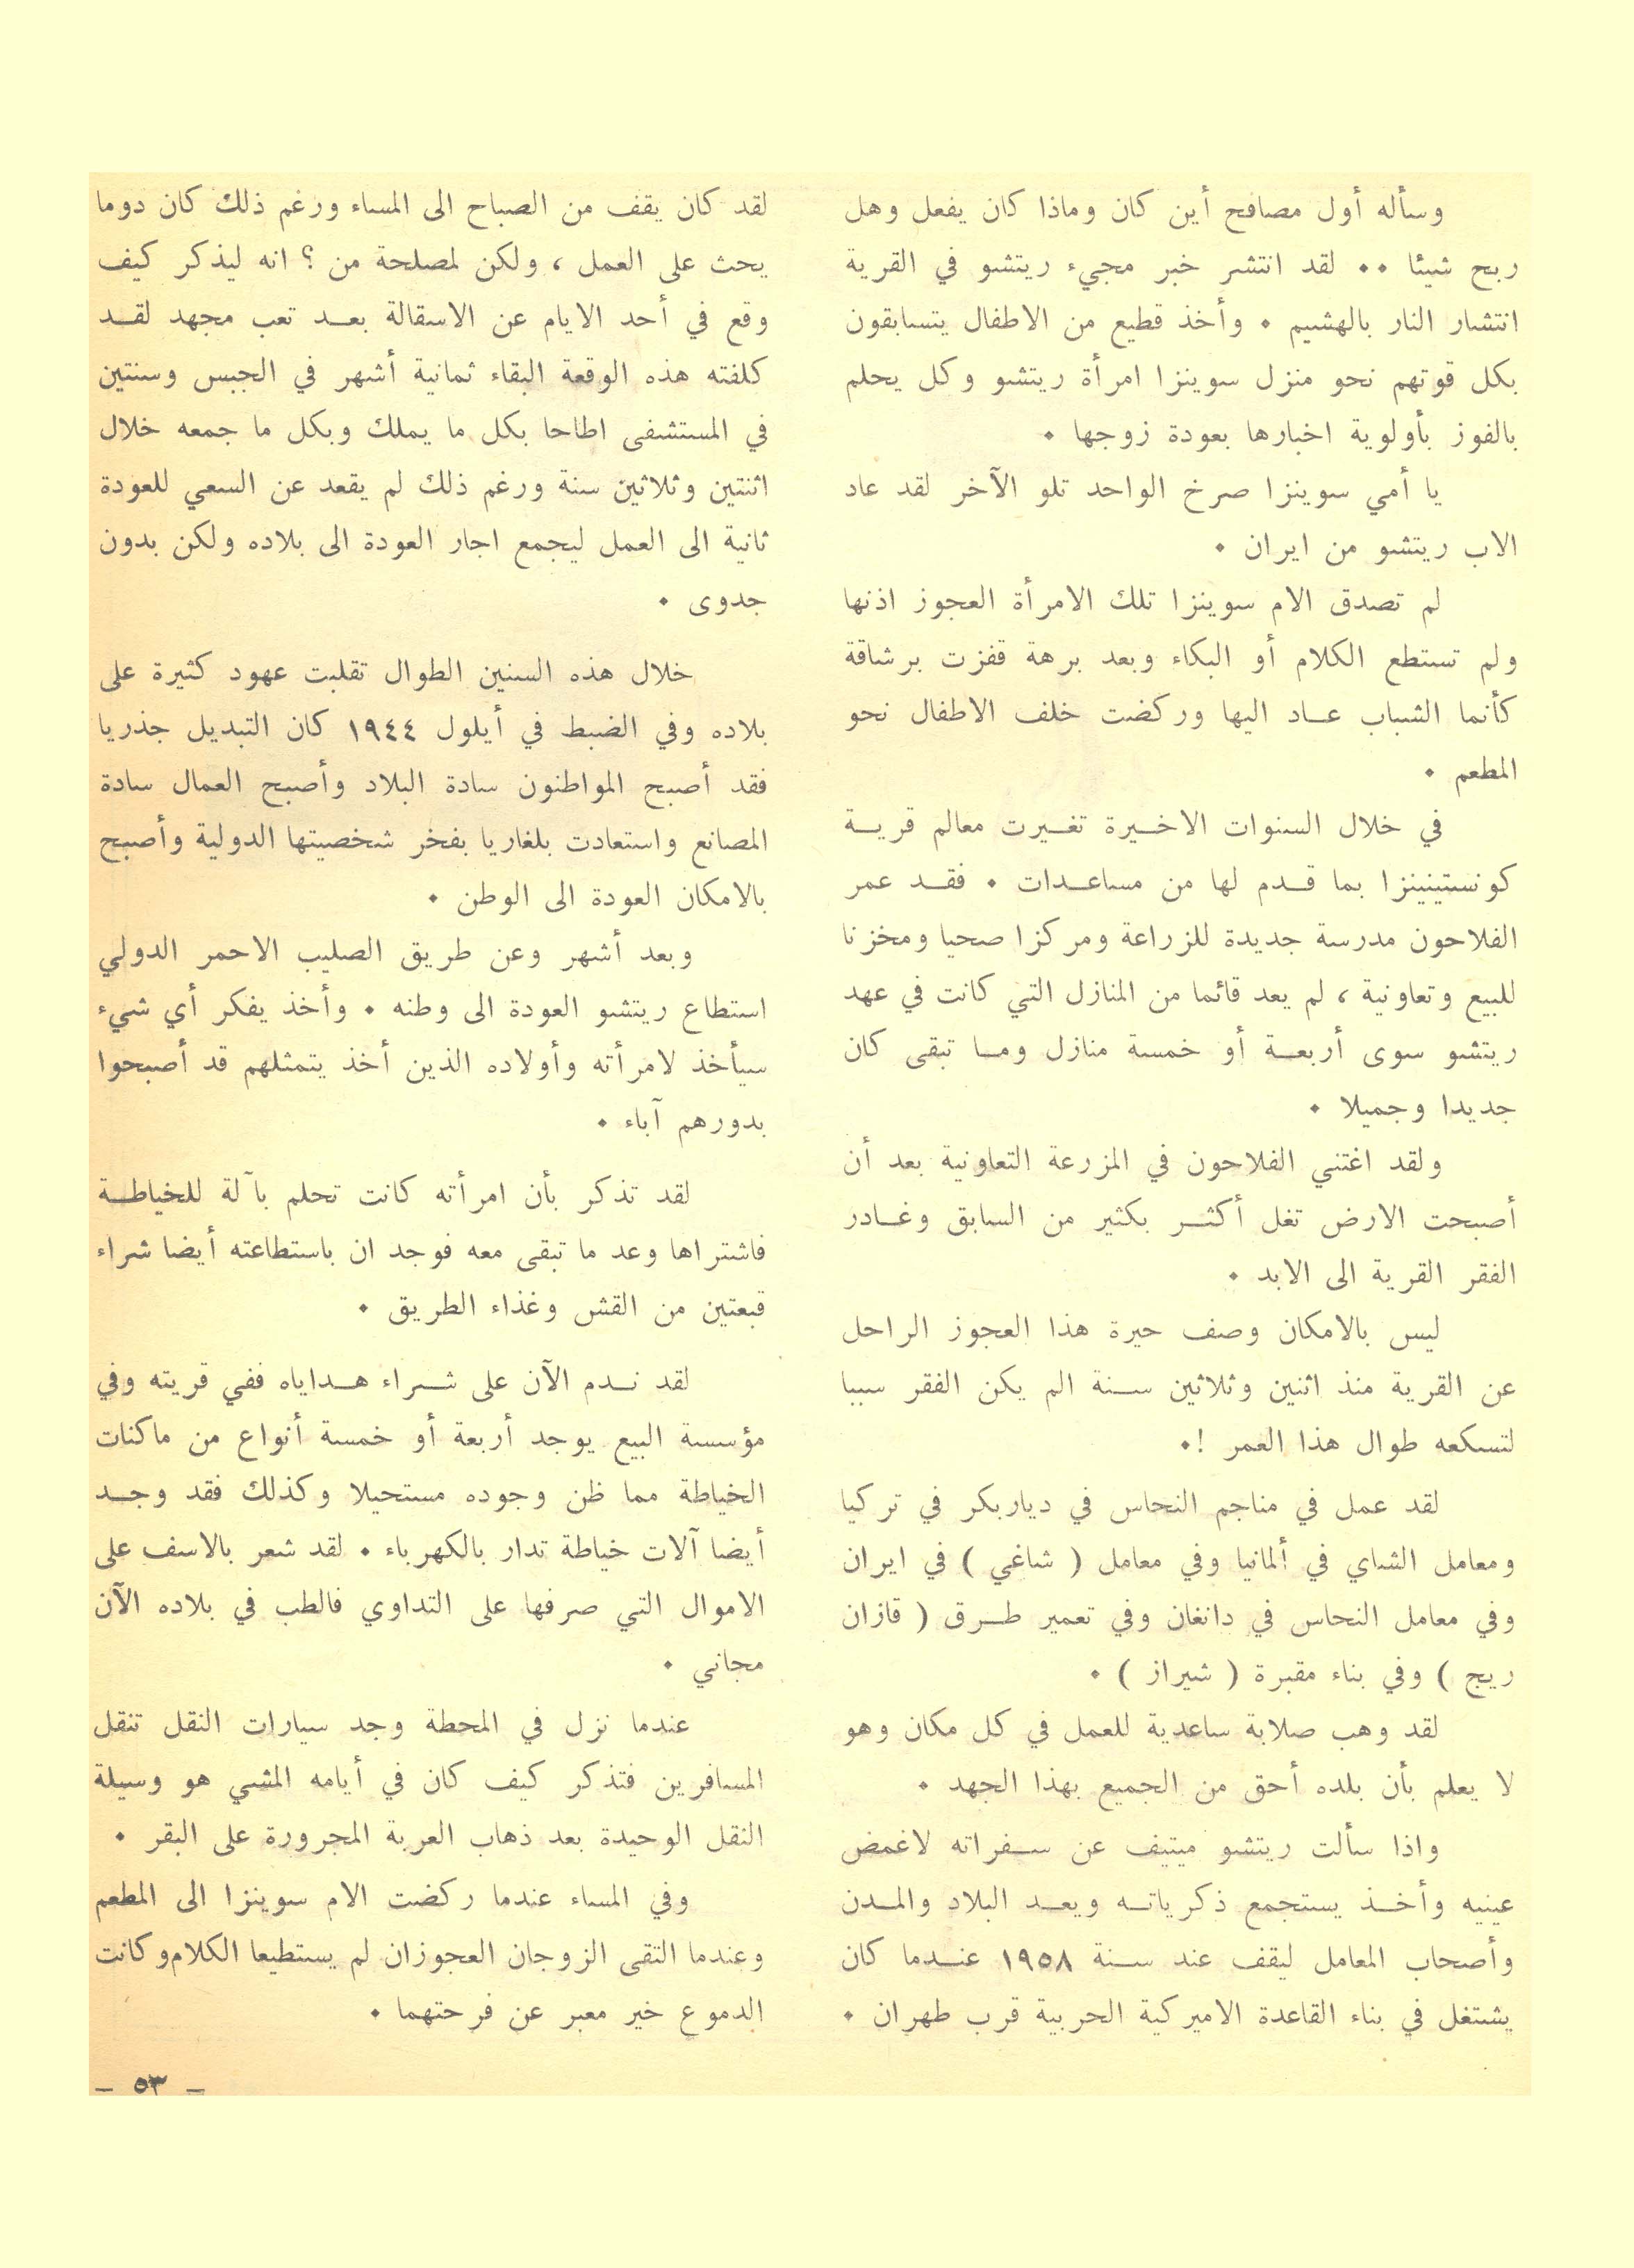 وسأله أول مصافح أين كان وماذا كان يفعل وهل
ربح شيئا ٠٠ لقد انتشر خبر مجيء ريتشو في القرية
انتشار النار بالهشيم ٠ وأخذ قطيع من الاطفال يتسابقون
بكل قوتهم نحو منزل سوينزا امرأة ريتشو وكل يحلم
بالفوز بأولوية اخبارها بعودة زوجها ٠
يا أمي سوينزا صرخ الواحد تلو الآخر لقد عاد
الاب ريتشو من ايران ٠
لم تصدق الام سوينزا تلك الامرأة العجوز اذنها
ولم تستطع الكلام أو البكاء وبعد برهة قفزت برشاقة
كأنما الشباب عـاد اليها وركضت خلف الاطفال نحو
المطعم ٠
في خلال السنوات الاخـيرة تغـيرت معالم قريـة
كونستينينزا بما قـدم لها من مساعـدات ٠ فقـد عمر
الفلاحون مدرسة جديدة للزراعة ومركزا صحيا ومخزنا
للبيع وتعاونية ، لم يعد قائما من المنازل التي كانت في عهد
ريتشو سوى أربعـة أو خمسة منازل ومـا تبقى كان
جديدا وجميلا ٠
ولقد اغتنى الفلاحون في المزرعة التعاونية بعد أن
أصبحت الارض تغل أكثـر بكثير من السابق وغـادر
الفقر القرية الى الابد ٠
ليس بالامكان وصف حيرة هذا العجوز الراحل
عن القرية منذ اثنين وثلاثين سـنة الم يكن الفقر سببا
لتسكعه طوال هذا العمر !٠
لقد عمل في مناجم النحاس في ديابكر في تركيا
ومعامل الشاي في ألمانيا وفي معامل ( شاغي ) في ايران
وفي معامل النحاس في دانغان وفي تعمير طـرق ( قازان
ريج ) وفي بناء مقبرة ( شيراز ) ٠
لقد وهب صلابة ساعدية للعمل في كل مكان وهو
لا يعلم بأن بلده أحق من الجميع بهذا الجهد ٠
واذا سألت ريتشو ميتيف عن سـفراته لاغمض
عينيه وأخـذ يستجمع ذكرياتـه ويعـد البلاد والمـدن
وأصحاب المعامل ليقف عند سـنة ١٩٥٨ عنـدما كان
يشتغل في بناء القاعدة الاميركية الحربية قرب طهران ٠
لقد كان يقف من الصباح الى المساء ورغم ذلك كان دوما
يحث على العمل ، ولكن لمصلحة من ؟ انه ليذكر كيف
وقع في أحد الايام عن الاسقالة بعـد تعب مجهد لقـد
كلفته هذه الوقعة البقاء ثمانية أشهر في الجبس وسنتين
في المستشفى اطاحا بكل ما يملك وبكل ما جمعه خلال
اثنتين وثلاثين سنة ورغم ذلك لم يقعد عن السعي للعودة
ثانية الى العمل ليجمع اجار العودة الى بلاده ولكن بدون
جدوى ٠
خلال هذه السنين الطوال تقلبت عهود كثيرة على
بلاده وفي الضبط في أيلول ١٩٤٤ كان التبديل جذريا
فقد أصبح المواطنون سادة البلاد وأصبح العمال سادة
المصانع واستعادت بلغاريا بفخر شخصيتها الدولية وأصبح
بالامكان العودة الى الوطن ٠
وبعد أشهر وعن طريق الصليب الاحمر الدولي
استطاع ريتشو العودة الى وطنه ٠ وأخذ يفكر أي شيء
سيأخذ لامرأته وأولاده الذين أخذ يتمثلهم قد أصبحوا
بدورهم آباء ٠
لقد تذكر بأن امرأته كانت تحلم بآلة للخياطـة
فاشتراها وعد ما تبقى معه فوجد ان باستطاعته أيضا شراء
قبعتين من القش وغذاء الطريق ٠
لقد نـدم الآن على شـراء هـداياه ففي قريته وفي
مؤسسة البيع يوجد أربعة أو خمسة أنواع من ماكنات
الخياطة مما ظن وجوده مستحيلا وكذلك فقد وجـد
أيضا آلات خياطة تدار بالكهرباء ٠ لقد شعر بالاسف على
الاموال التي صرفها على التداوي فالطب في بلاده الآن
مجاني ٠
عندما نزل في المحطة وجد سيارات النقل تنقل
المسافرين فتذكر كيف كان في أيامه المشي هو وسيلة
النقل الوحيدة بعد ذهاب العربة المجرورة على البقر ٠
وفي المساء عندما ركضت الام سوينزا الى المطعم
وعندما التقى الزوجان العجوزان لم يستطيعا الكلام وكانت
الدموع خير معبر عن فرحتهما ٠
– ٥٣ –